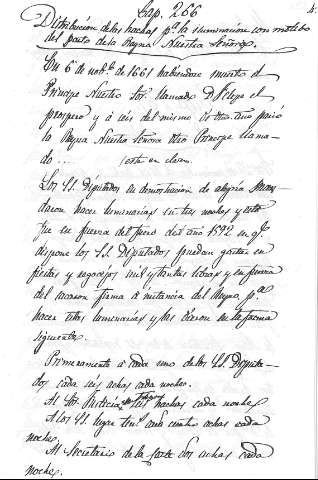 Cap. 266
4.
Distribución de las hachas pª la iluminacion con motibo
del parto de la Reyna Nuestra Señora.
En 6 de nobe. de 1661 habiendose muerto el
Principe Nuestro Sor. llamado Dn Felipe el
prospero y á seis del mismo mes y año parió
la Reyna Nuestra Señora otro Principe llama-
do ... (está en claro.
Los SS. Diputados en demostracion de alegria man-
daron hacer luminarias en tres noches y esto
fue en fuerza del fuero del año 1592 en qe.
dispone los SS. Diputados puedan gastar en
fiestas y regocijos mil y tantas libras y en fuerza
del acto en forma á instancia del Reyno, pª
hacer estas luminarias y las dieron en la forma
siguiente.
Primeramente á cada uno de los SS. Diputa-
dos cada seis achas cada noche.
Al Sor. Justicia seis hachas cada noche
A los SS. lugar tens. a cuatro achas cada
noche.
Al Secretario de la Corte dos achas cada
noche.